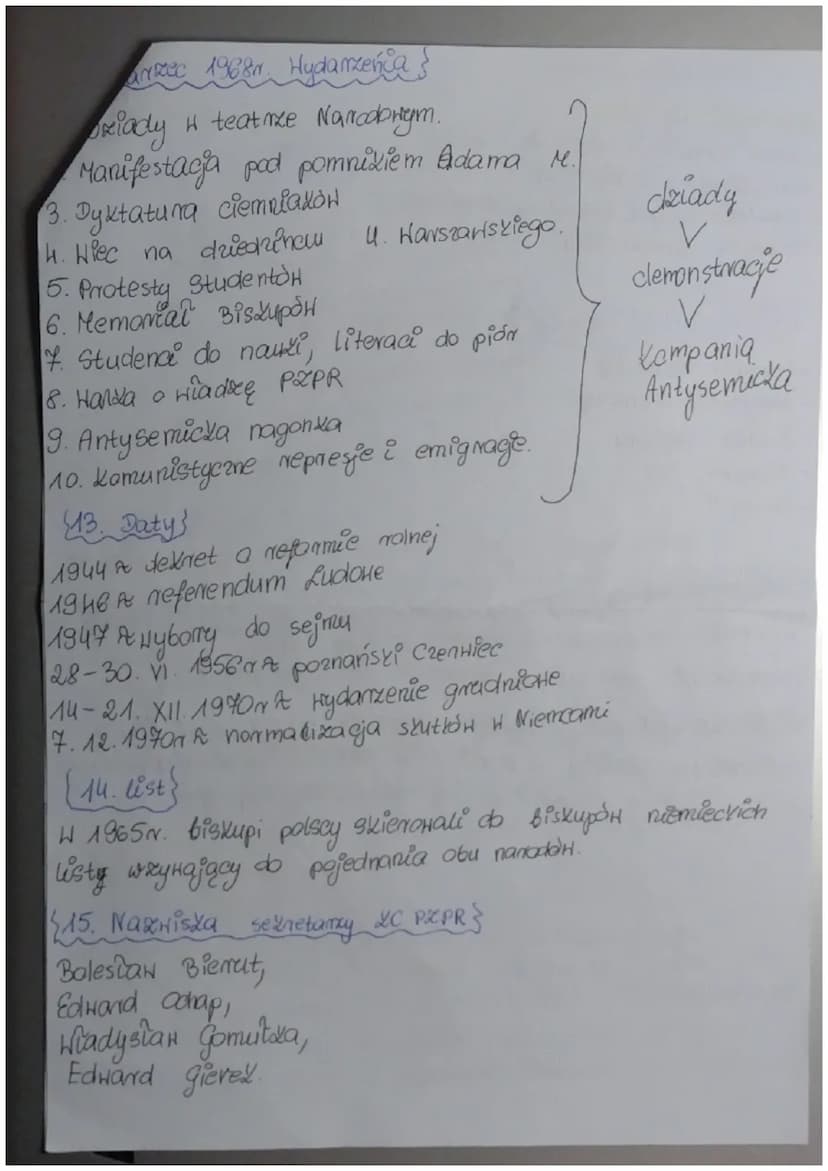 arzec 1968r. Wydarzenia}
Dziady w teatrze Narodowym.
Manifestacja pod pomnikiem Adama M.
3. Dyktatura ciemniaków
4. Wiec na dziedzińcu U. Warszawskiego.
5. Protesty Studentów
6. Memoriał Biskupów
7. Studenci do nauki, literaci do piór
8. Walka o władzę PZPR
9. Antysemicka nagonka
10. Komunistyczne represje i emigracje.
dziady
V
demonstracje
V
Kampania
Antysemicka
{13. Daty}
1944 → dekret o reformie rolnej
1946 → referendum Ludowe
1947 → wybory do sejmu
28-30. VI. 1956r → poznański Czerwiec
14-21. XII. 1970r → wydarzenie grudniowe
7. 12. 1970r → normalizacja skutków w Niemcami
{14. list}
W 1965r. biskupi polscy skierowali do biskupów niemieckich
listy wzywający do pojednania obu narodów.
{15. Nazwiska sekretarzy KC PZPR}
Bolesław Bierut,
Edward Ochap,
Władysław Gomułka,
Edward Gierek.